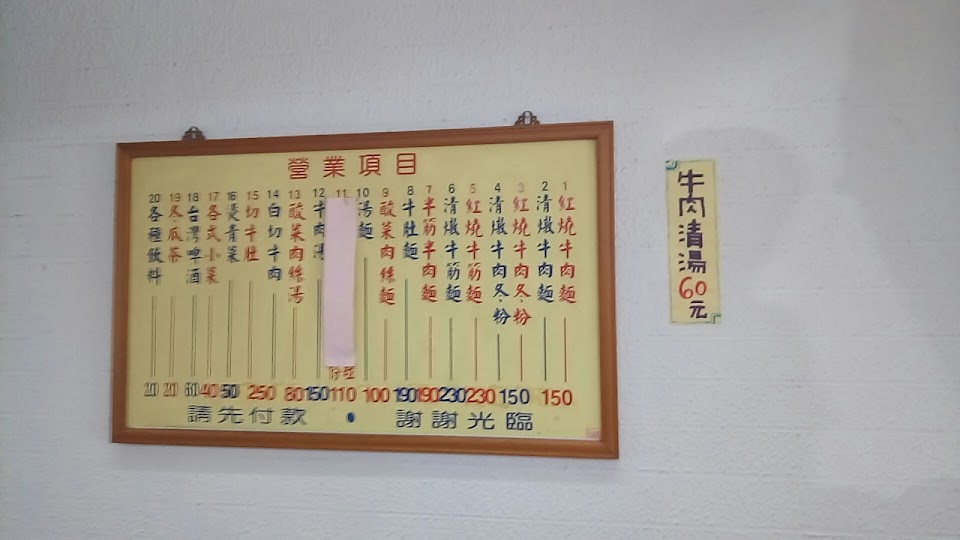 營業項目
1 紅燒牛肉麵
2 清燉牛肉麵 150
3 紅燒牛肉冬粉
4 清燉牛肉冬粉 150
5 紅燒牛筋麵 230
6 清燉牛筋麵 230
7 半筋半肉麵 190
8 牛肚麵 190
9 酸菜肉絲麵 100
10 湯麵
11 110
12 牛肉湯 150
13 酸菜肉絲湯 80
14 白切牛肉
15 切牛肚 250
16 燙青菜 50
17 各式小菜 40
18 台灣啤酒 60
19 冬瓜茶 20
20 各種飲料 20
請先付款 • 謝謝光臨
牛肉清湯60元